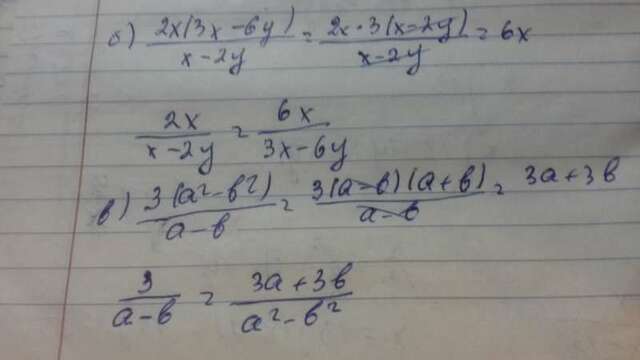 б) 2x(3x-6y)/x-2y = 2x·3(x-2y)/x-2y = 6x
2x/x-2y = 6x/3x-6y
в) 3(a²-b²)/a-b = 3(a-b)(a+b)/a-b = 3a+3b
3/a-b = 3a+3b/a²-b²